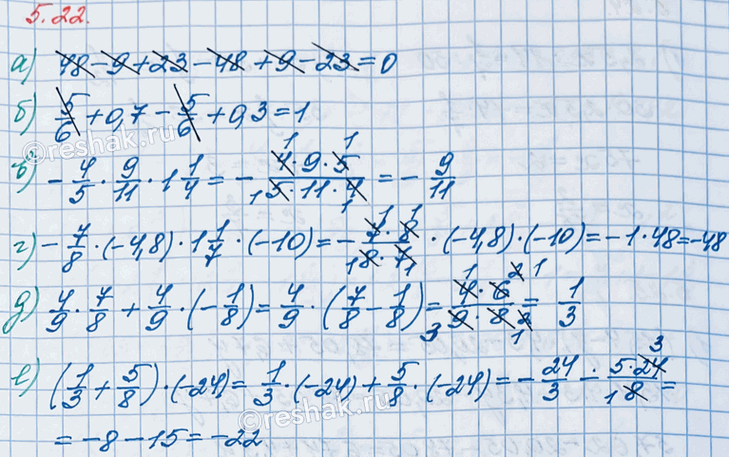 5.22.
а) 48 - 9 + 23 - 48 + 9 - 23 = 0
б) 5/6 + 0,7 - 5/6 + 0,3 = 1
в) - 4/5 · 9/11 · 1 1/4 = - (4·9·5)/(5·11·4) = - 9/11
г) - 7/8 · (-4,8) · 1 1/7 · (-10) = - (7·8)/(8·7) · (-4,8) · (-10) = -1·48 = -48
д) 4/9 · 7/8 + 4/9 · (- 1/8) = 4/9 · (7/8 - 1/8) = (4·6)/(9·8) = 1/3
е) (1/3 + 5/8) · (-24) = 1/3 · (-24) + 5/8 · (-24) = - 24/3 - (5·24)/8 =
= -8 - 15 = -22.
©Reshak.ru